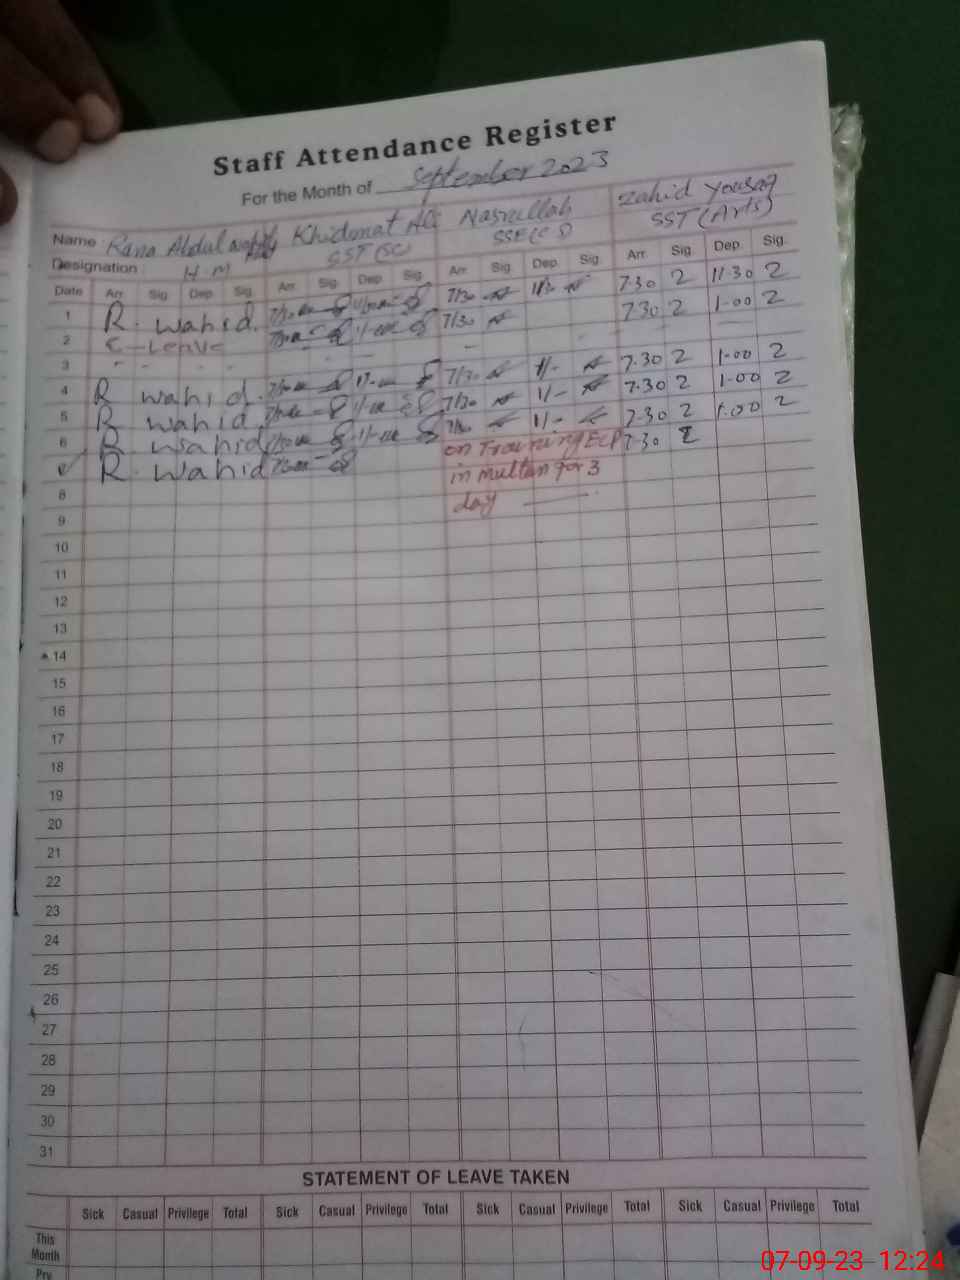 Staff Attendance Register
For the Month of September 2023
Name Rana Abdul Khidmat Ali Nasrullah Zahid Yousaf
Designation H.M SST (SC) SSE(CS) SST (Arts)
Date Arr Sig. Dep. Sig. Arr Sig. Dep. Sig. Arr Sig. Dep. Sig. Arr Sig. Dep. Sig.
1 R. wahid. 7/30 11/30 7.30 2 11.30 2
2 C-Leave 7/30 7.30 2 1.00 2
3 - - - -
4 R wahid. 7/30 1/- 7.30 2 1.00 2
5 R wahid. 7/30 1/- 7.30 2 1.00 2
6 R wahid 7/30 1/- 7.30 2 1.00 2
R. wahid on Training ECP 7.30 2
8 in multan for 3
day
9
10
11
12
13
14
15
16
17
18
19
20
21
22
23
24
25
26
27
28
29
30
31
STATEMENT OF LEAVE TAKEN
Sick Casual Privilege Total Sick Casual Privilege Total Sick Casual Privilege Total Sick Casual Privilege Total
This
Month
Prv
07-09-23 12:24